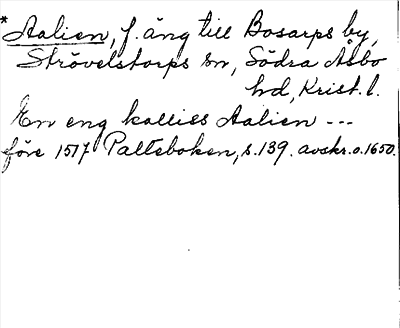 *Aalien, f. äng till Bosarps by,
Strövelstorps sn, Södra Åsbo
hd, Krist. l.
En eng kalliss Aalien ---
före 1517 Palteboken, s. 139. avskr. o. 1650.